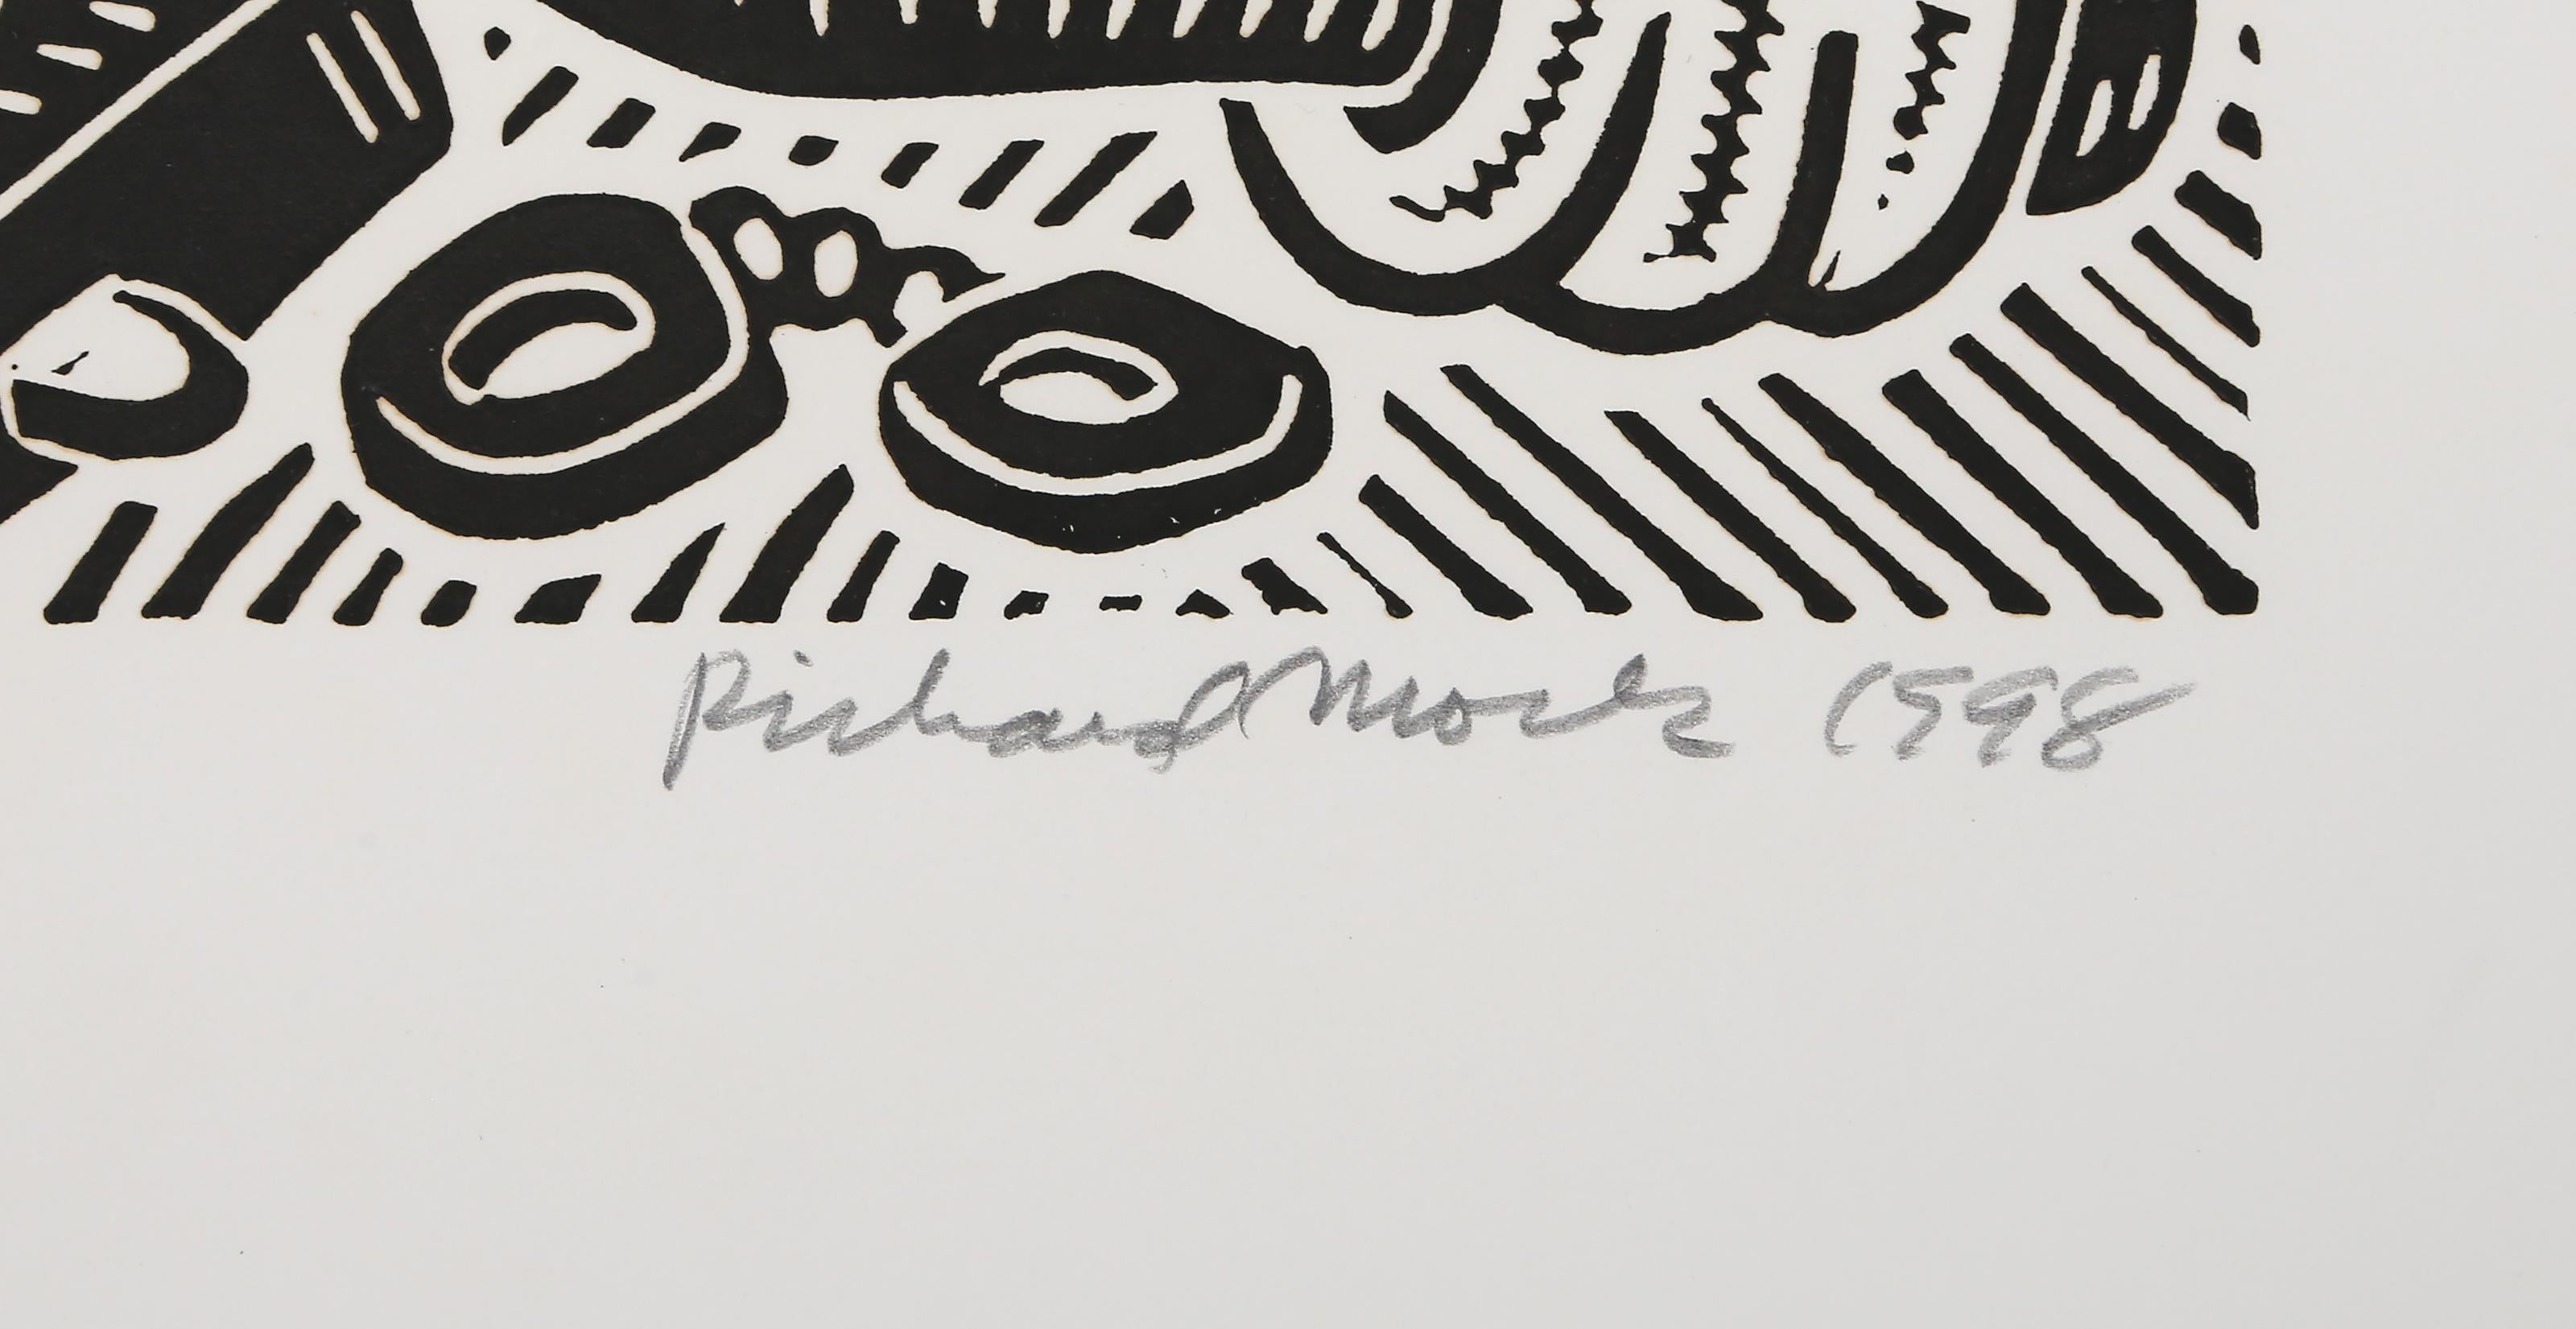 Richard Mock 1998